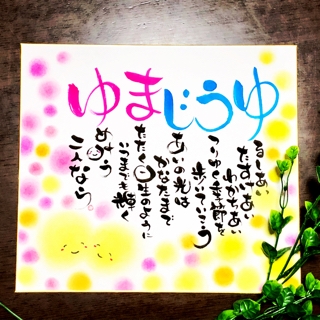 ゆうじまゆ
るしあい
たすけあい
わかちあい
つりゆく季節を
歩いていこう
あいの光は
かなたまで
たたく星のように
どこまでも輝く
め叶う
二人なら。